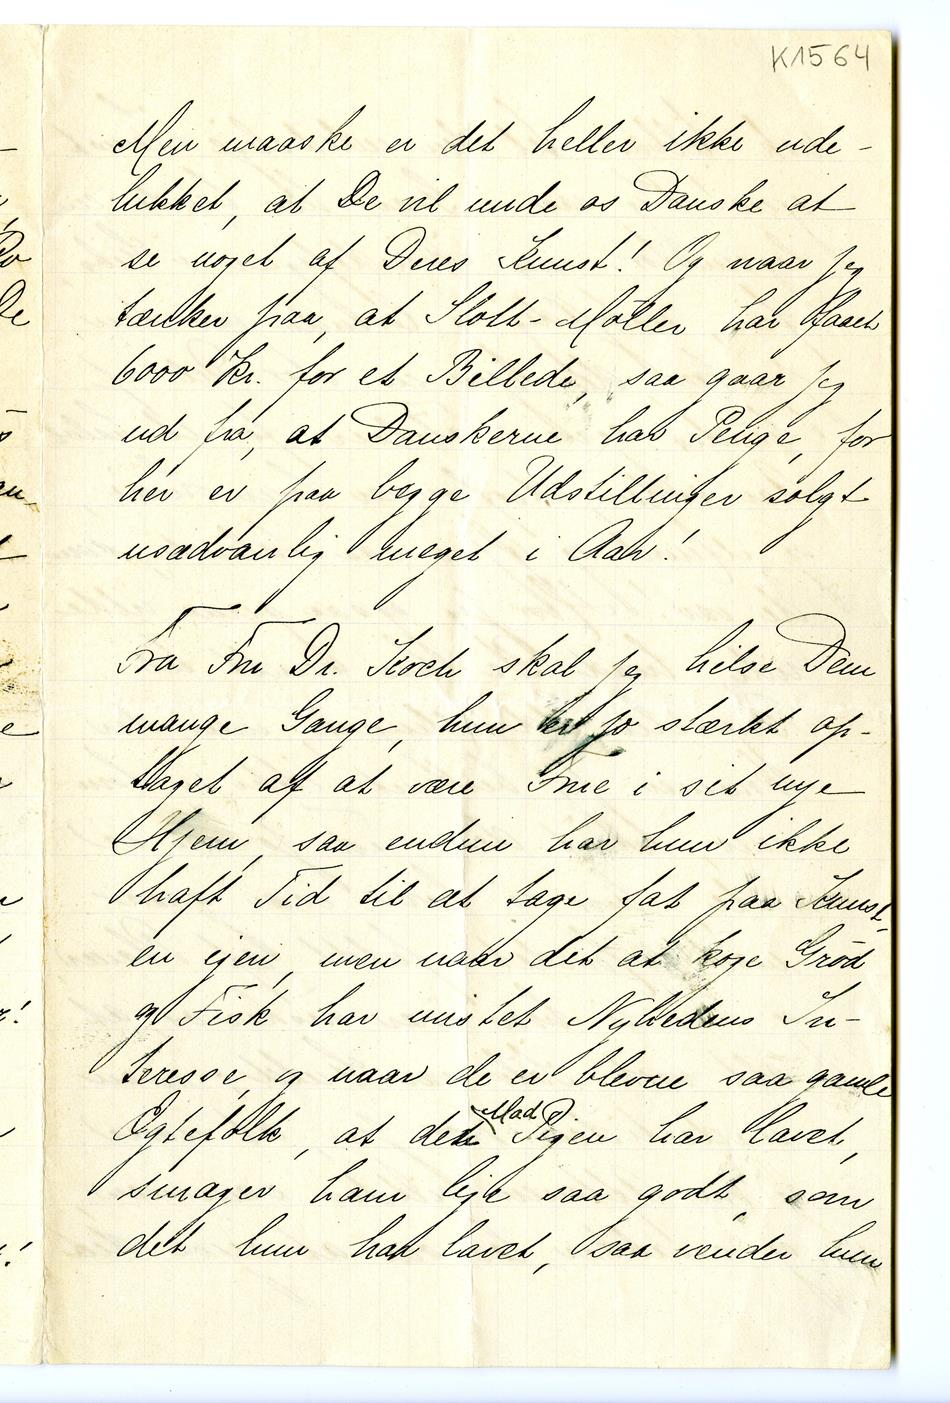 K1564
Men maaske er det heller ikke ude-
lukket, at De vil unde os Danske at
se noget af Deres Kunst! Og naar jeg
tænker paa, at Slott-Möller har faaet
6000 Kr. for et Billede, saa gaar jeg
ud fra, at Danskerne har Penge, for
her er paa begge Udstillinger solgt
usædvanlig meget i Aar!
Fra Fru Dr. Koch skal jeg hilse Dem
mange Gange, hun er jo stærkt op-
taget af at være Frue i sit nye
Hjem, saa endnu har hun ikke
haft Tid til at tage fat paa Kunst-
en igen, men naar det at koge Grød
og Fisk har mistet Nyhedens In-
teresse, og naar de er blevne saa gamle
Ægtefolk, at den Mad Pigen har lavet,
smager ham lige saa godt, som
det hun har lavet, saa vender hun